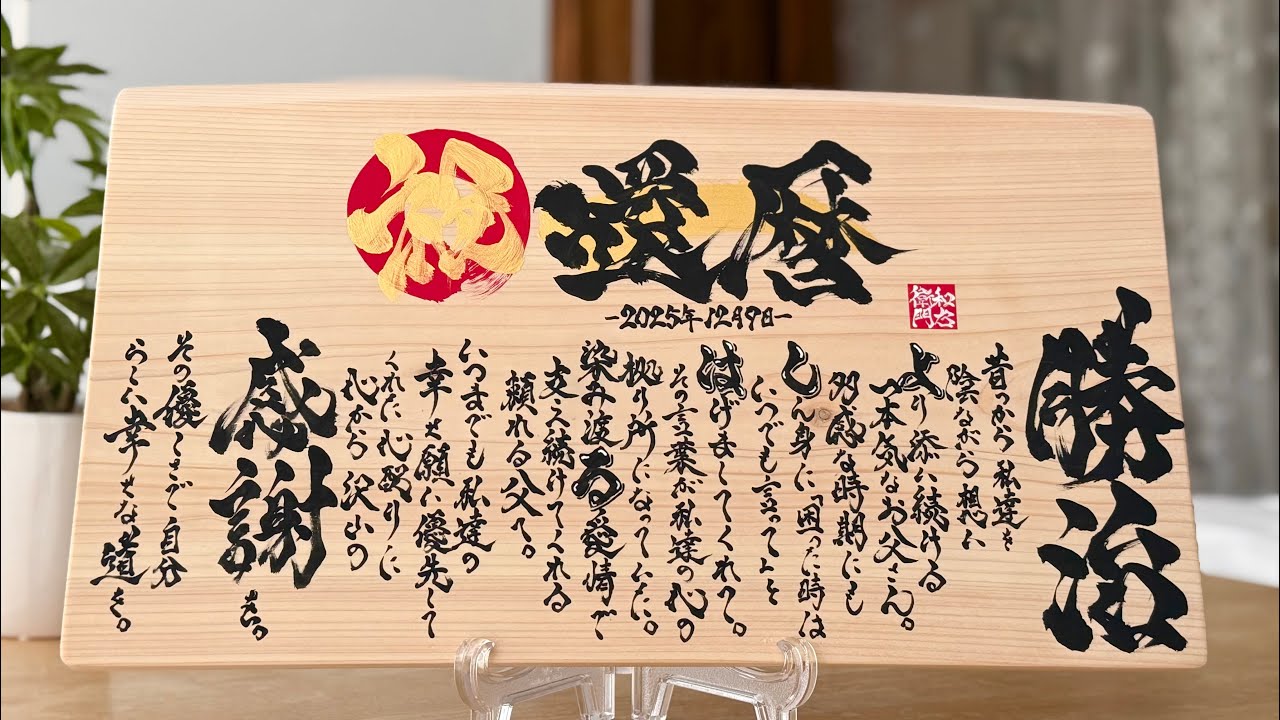 祝 還暦
-2025年12月9日-
和右衛門
勝治
昔っから私達を
陰ながら想い
より添い続ける
一本気なお父さん。
多感な時期にも
しん身に「困った時は
いつでも言って」と
はげましてくれて。
その言葉が私達の心の
拠り所になっていた。
染み渡る愛情で
支え続けてくれる
頼れる父へ。
いつまでも私達の
幸せ願い優先して
くれた心配りに
心から沢山の
感謝を。
その優しさが自分
らしい幸せな道を。